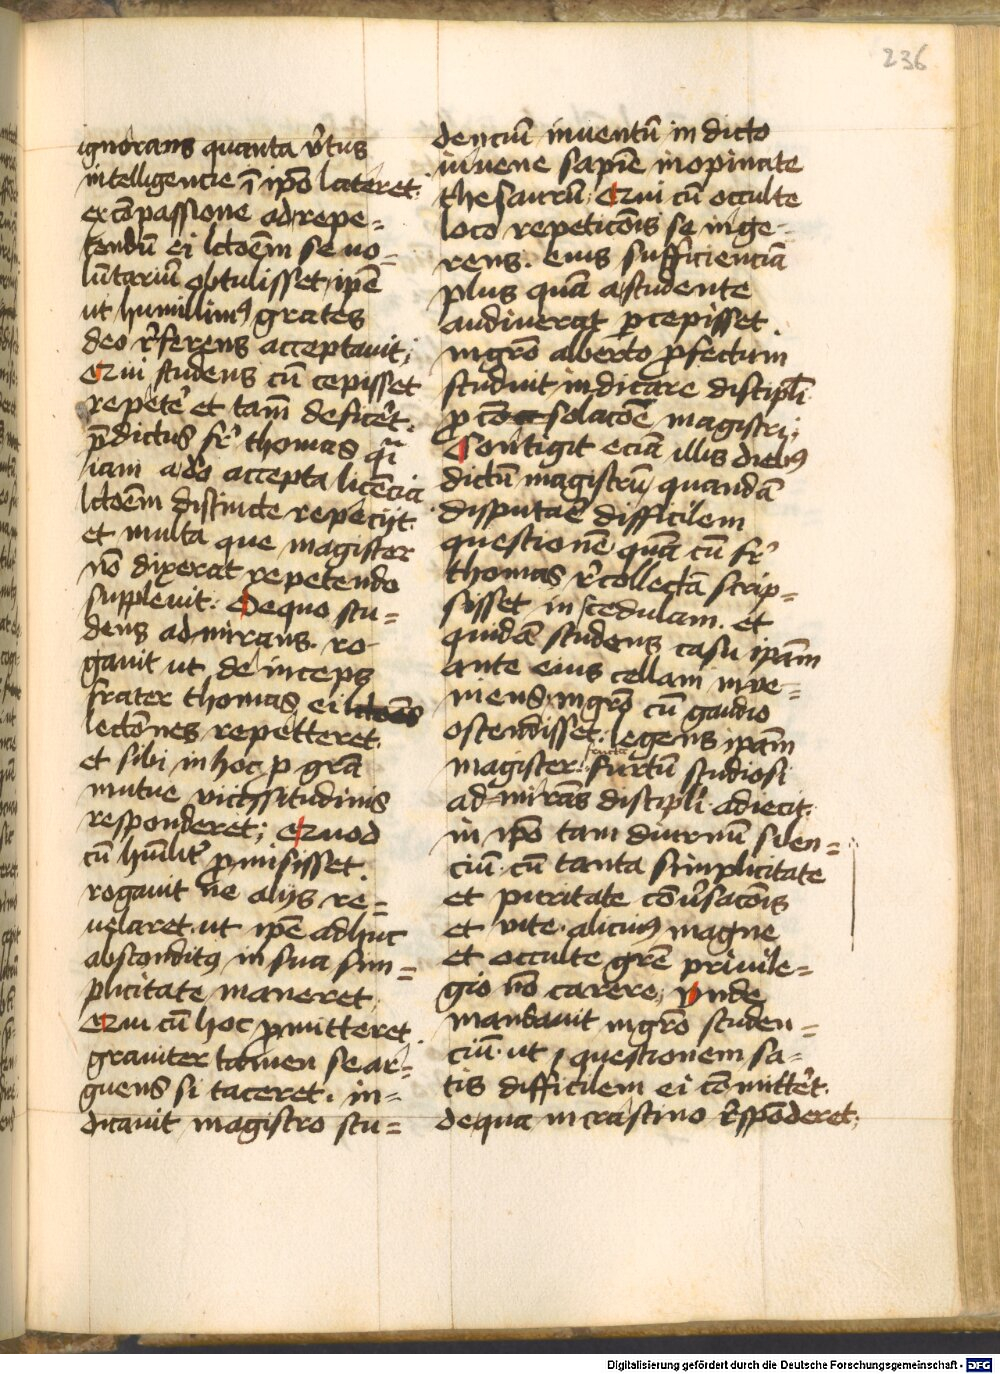 236
ignorans quanta v̓tus
intelligencie ī ip̄o lateret.
ex cōpassione ad repe=
tendū ei lctōem̄ se uo=
lūtariū obtulisset ip̄e
ut humillimꝰ grates
deo r̓ferens acceptauit;
Qui studens cū cepisset
repeter̓ et tam̄ deficer̓t.
p̄dictus fr̓ thomas q̄i
iam a dō accepta licēcia
lctōem̄ distincte repeciit.
et multa que magister
nō dixerat repetendo
suppleuit. De quo stu=
dens admirans. ro-
gauit ut de inceps
frater thomas ei
lectōnes repetteret.
et sibi in hoc p grā
mutue vicissitudinis
responderet; Quod
cū hūilit̓ ꝓmisisset.
rogauit ne alijs re=
uelaret. ut ip̄e adhuc
absconditꝰ in sua sim=
plicitate maneret.
Qui cū hoc ꝓmitteret.
grauiter tamen se ar=
guens si taceret. in=
dicauit magistro stu=
denciū inuentū in dicto
iuuene sapīe inopinate
thesaurū; Qui cū occulte
loco repeticōis se inge-
rens. eius sufficienciā
plus quā a studente
audiuerat ꝑcepisset.
mgrō alberto ꝓfectum
studuit indicare discipl̄i
p cōsolacōe magistri;
Contigit eciā illis diebꝰ
dictū magistrū quandā
disputar̓e difficilem
questionē quā cū fr̓
thomas r̓collectā scrip=
sisset in scedulam. et
quidā studens casu ip̄am
ante eius cellam inue=
niens. mgrō cū gaudio
ostendisset. legens ip̄am
magister. furtū studiosi
ad=mirās discipl̄i adiecit.
in ip̄o tam diurnū silen=
ciū. cū tanta simplicitate
et puritate cōu̓sacōis
et vite. alicuiꝰ magne
et occulte grē priuile=
gio nō carere; Vnde
mandauit mgrō studen=
ciū. ut questionem sa=
tis difficilem ei cōmitter̓t.
de qua in crastino r̓spōderet;
Digitalisierung gefördert durch die Deutsche Forschungsgemeinschaft - DFG